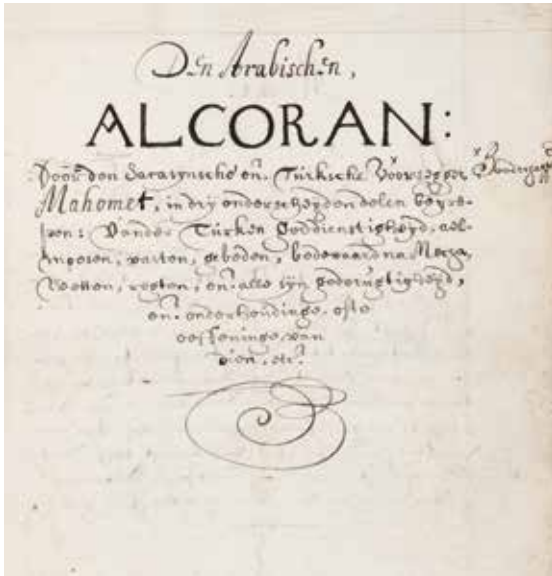 Den Arabischen,
ALCORAN:
Door den Saracynsche en̄. Türksche Voorsegger
Mahomet, in dry onderscheyden delen begre-
pen: Van der Türken Goddienstigheyd, ael-
moesen, vasten, gebeden, bedevaard na Mecza,
Wetten, regten, en̄. alle syn
en̄. onderhoudinge, ofte
oeffeninge van
dien, etc.